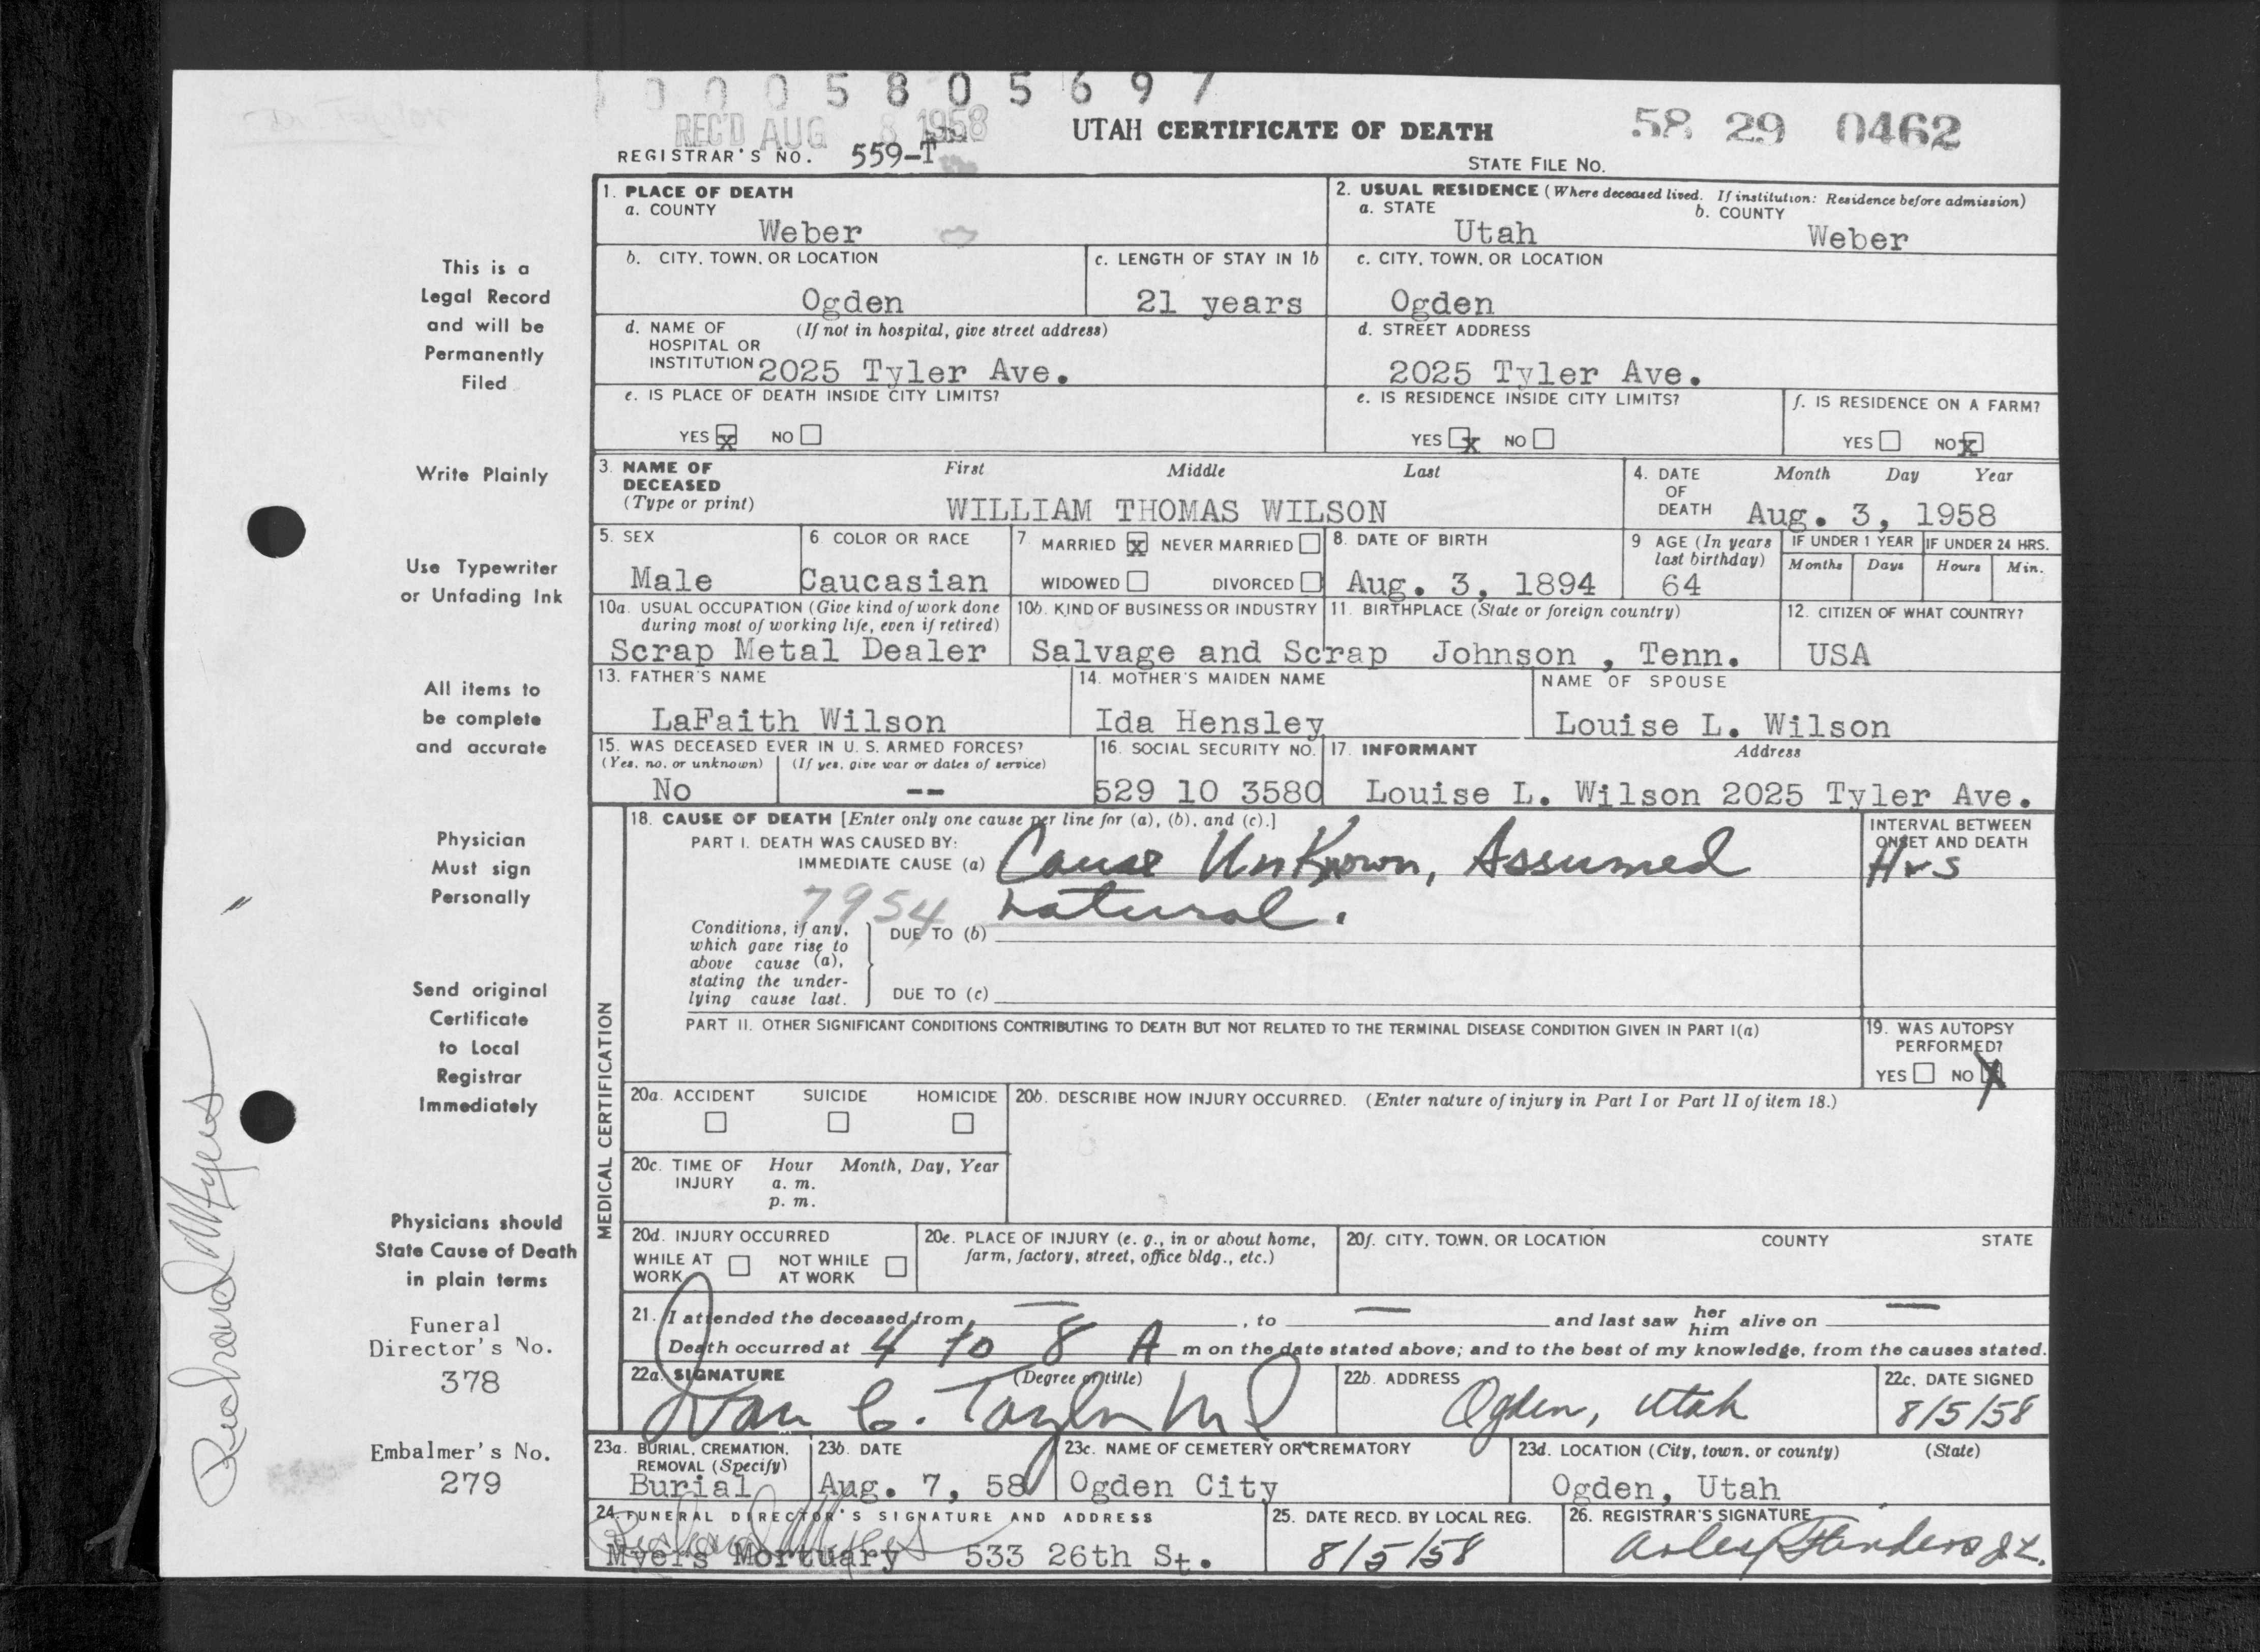 0 0 0 5 8 0 5 6 9 7
REC'D AUG 8 1958
UTAH CERTIFICATE OF DEATH
58 29 0462
REGISTRAR'S NO. 559-T
STATE FILE NO.
1. PLACE OF DEATH
a. COUNTY
Weber
2. USUAL RESIDENCE (Where deceased lived. If institution: Residence before admission)
a. STATE
b. COUNTY
Utah
Weber
b. CITY, TOWN, OR LOCATION
Ogden
c. LENGTH OF STAY IN 1b
21 years
c. CITY, TOWN, OR LOCATION
Ogden
d. NAME OF (If not in hospital, give street address)
HOSPITAL OR
INSTITUTION 2025 Tyler Ave.
d. STREET ADDRESS
2025 Tyler Ave.
e. IS PLACE OF DEATH INSIDE CITY LIMITS?
YES X NO
e. IS RESIDENCE INSIDE CITY LIMITS?
YES X NO
f. IS RESIDENCE ON A FARM?
YES NO X
3. NAME OF DECEASED
(Type or print)
First Middle Last
WILLIAM THOMAS WILSON
4. DATE OF DEATH
Month Day Year
Aug. 3, 1958
5. SEX
Male
6. COLOR OR RACE
Caucasian
7 MARRIED X NEVER MARRIED
WIDOWED DIVORCED
8. DATE OF BIRTH
Aug. 3, 1894
9 AGE (In years
last birthday)
64
IF UNDER 1 YEAR
Months Days
IF UNDER 24 HRS.
Hours Min.
10a. USUAL OCCUPATION (Give kind of work done
during most of working life, even if retired)
Scrap Metal Dealer
10b. KIND OF BUSINESS OR INDUSTRY
Salvage and Scrap
11. BIRTHPLACE (State or foreign country)
Johnson , Tenn.
12. CITIZEN OF WHAT COUNTRY?
USA
13. FATHER'S NAME
LaFaith Wilson
14. MOTHER'S MAIDEN NAME
Ida Hensley
NAME OF SPOUSE
Louise L. Wilson
15. WAS DECEASED EVER IN U. S. ARMED FORCES?
(Yes, no, or unknown) (If yes, give war or dates of service)
No --
16. SOCIAL SECURITY NO.
529 10 3580
17. INFORMANT Address
Louise L. Wilson 2025 Tyler Ave.
MEDICAL CERTIFICATION
18. CAUSE OF DEATH [Enter only one cause per line for (a), (b), and (c).]
PART I. DEATH WAS CAUSED BY:
IMMEDIATE CAUSE (a) Cause UnKnown, Assumed
7954 natural.
INTERVAL BETWEEN
ONSET AND DEATH
Hrs
Conditions, if any,
which gave rise to
above cause (a),
stating the under-
lying cause last.
DUE TO (b)
DUE TO (c)
PART II. OTHER SIGNIFICANT CONDITIONS CONTRIBUTING TO DEATH BUT NOT RELATED TO THE TERMINAL DISEASE CONDITION GIVEN IN PART I(a)
19. WAS AUTOPSY
PERFORMED?
YES NO X
20a. ACCIDENT SUICIDE HOMICIDE
20b. DESCRIBE HOW INJURY OCCURRED. (Enter nature of injury in Part I or Part II of item 18.)
20c. TIME OF INJURY
Hour Month, Day, Year
a. m.
p. m.
20d. INJURY OCCURRED
WHILE AT WORK NOT WHILE AT WORK
20e. PLACE OF INJURY (e. g., in or about home,
farm, factory, street, office bldg., etc.)
20f. CITY, TOWN, OR LOCATION COUNTY STATE
21. I attended the deceased from — , to — and last saw her him alive on —
Death occurred at 4 to 8 A m on the date stated above; and to the best of my knowledge, from the causes stated.
22a. SIGNATURE (Degree or title)
Dan C. Taylor MD
22b. ADDRESS
Ogden, Utah
22c. DATE SIGNED
8/5/58
23a. BURIAL, CREMATION,
REMOVAL (Specify)
Burial
23b. DATE
Aug. 7, 58
23c. NAME OF CEMETERY OR CREMATORY
Ogden City
23d. LOCATION (City, town, or county) (State)
Ogden, Utah
24. FUNERAL DIRECTOR'S SIGNATURE AND ADDRESS
Richard Myers
Myers Mortuary 533 26th St.
25. DATE RECD. BY LOCAL REG.
8/5/58
26. REGISTRAR'S SIGNATURE
This is a
Legal Record
and will be
Permanently
Filed
Write Plainly
Use Typewriter
or Unfading Ink
All items to
be complete
and accurate
Physician
Must sign
Personally
Send original
Certificate
to Local
Registrar
Immediately
Physicians should
State Cause of Death
in plain terms
Funeral
Director's No.
378
Embalmer's No.
279
Richard Myers